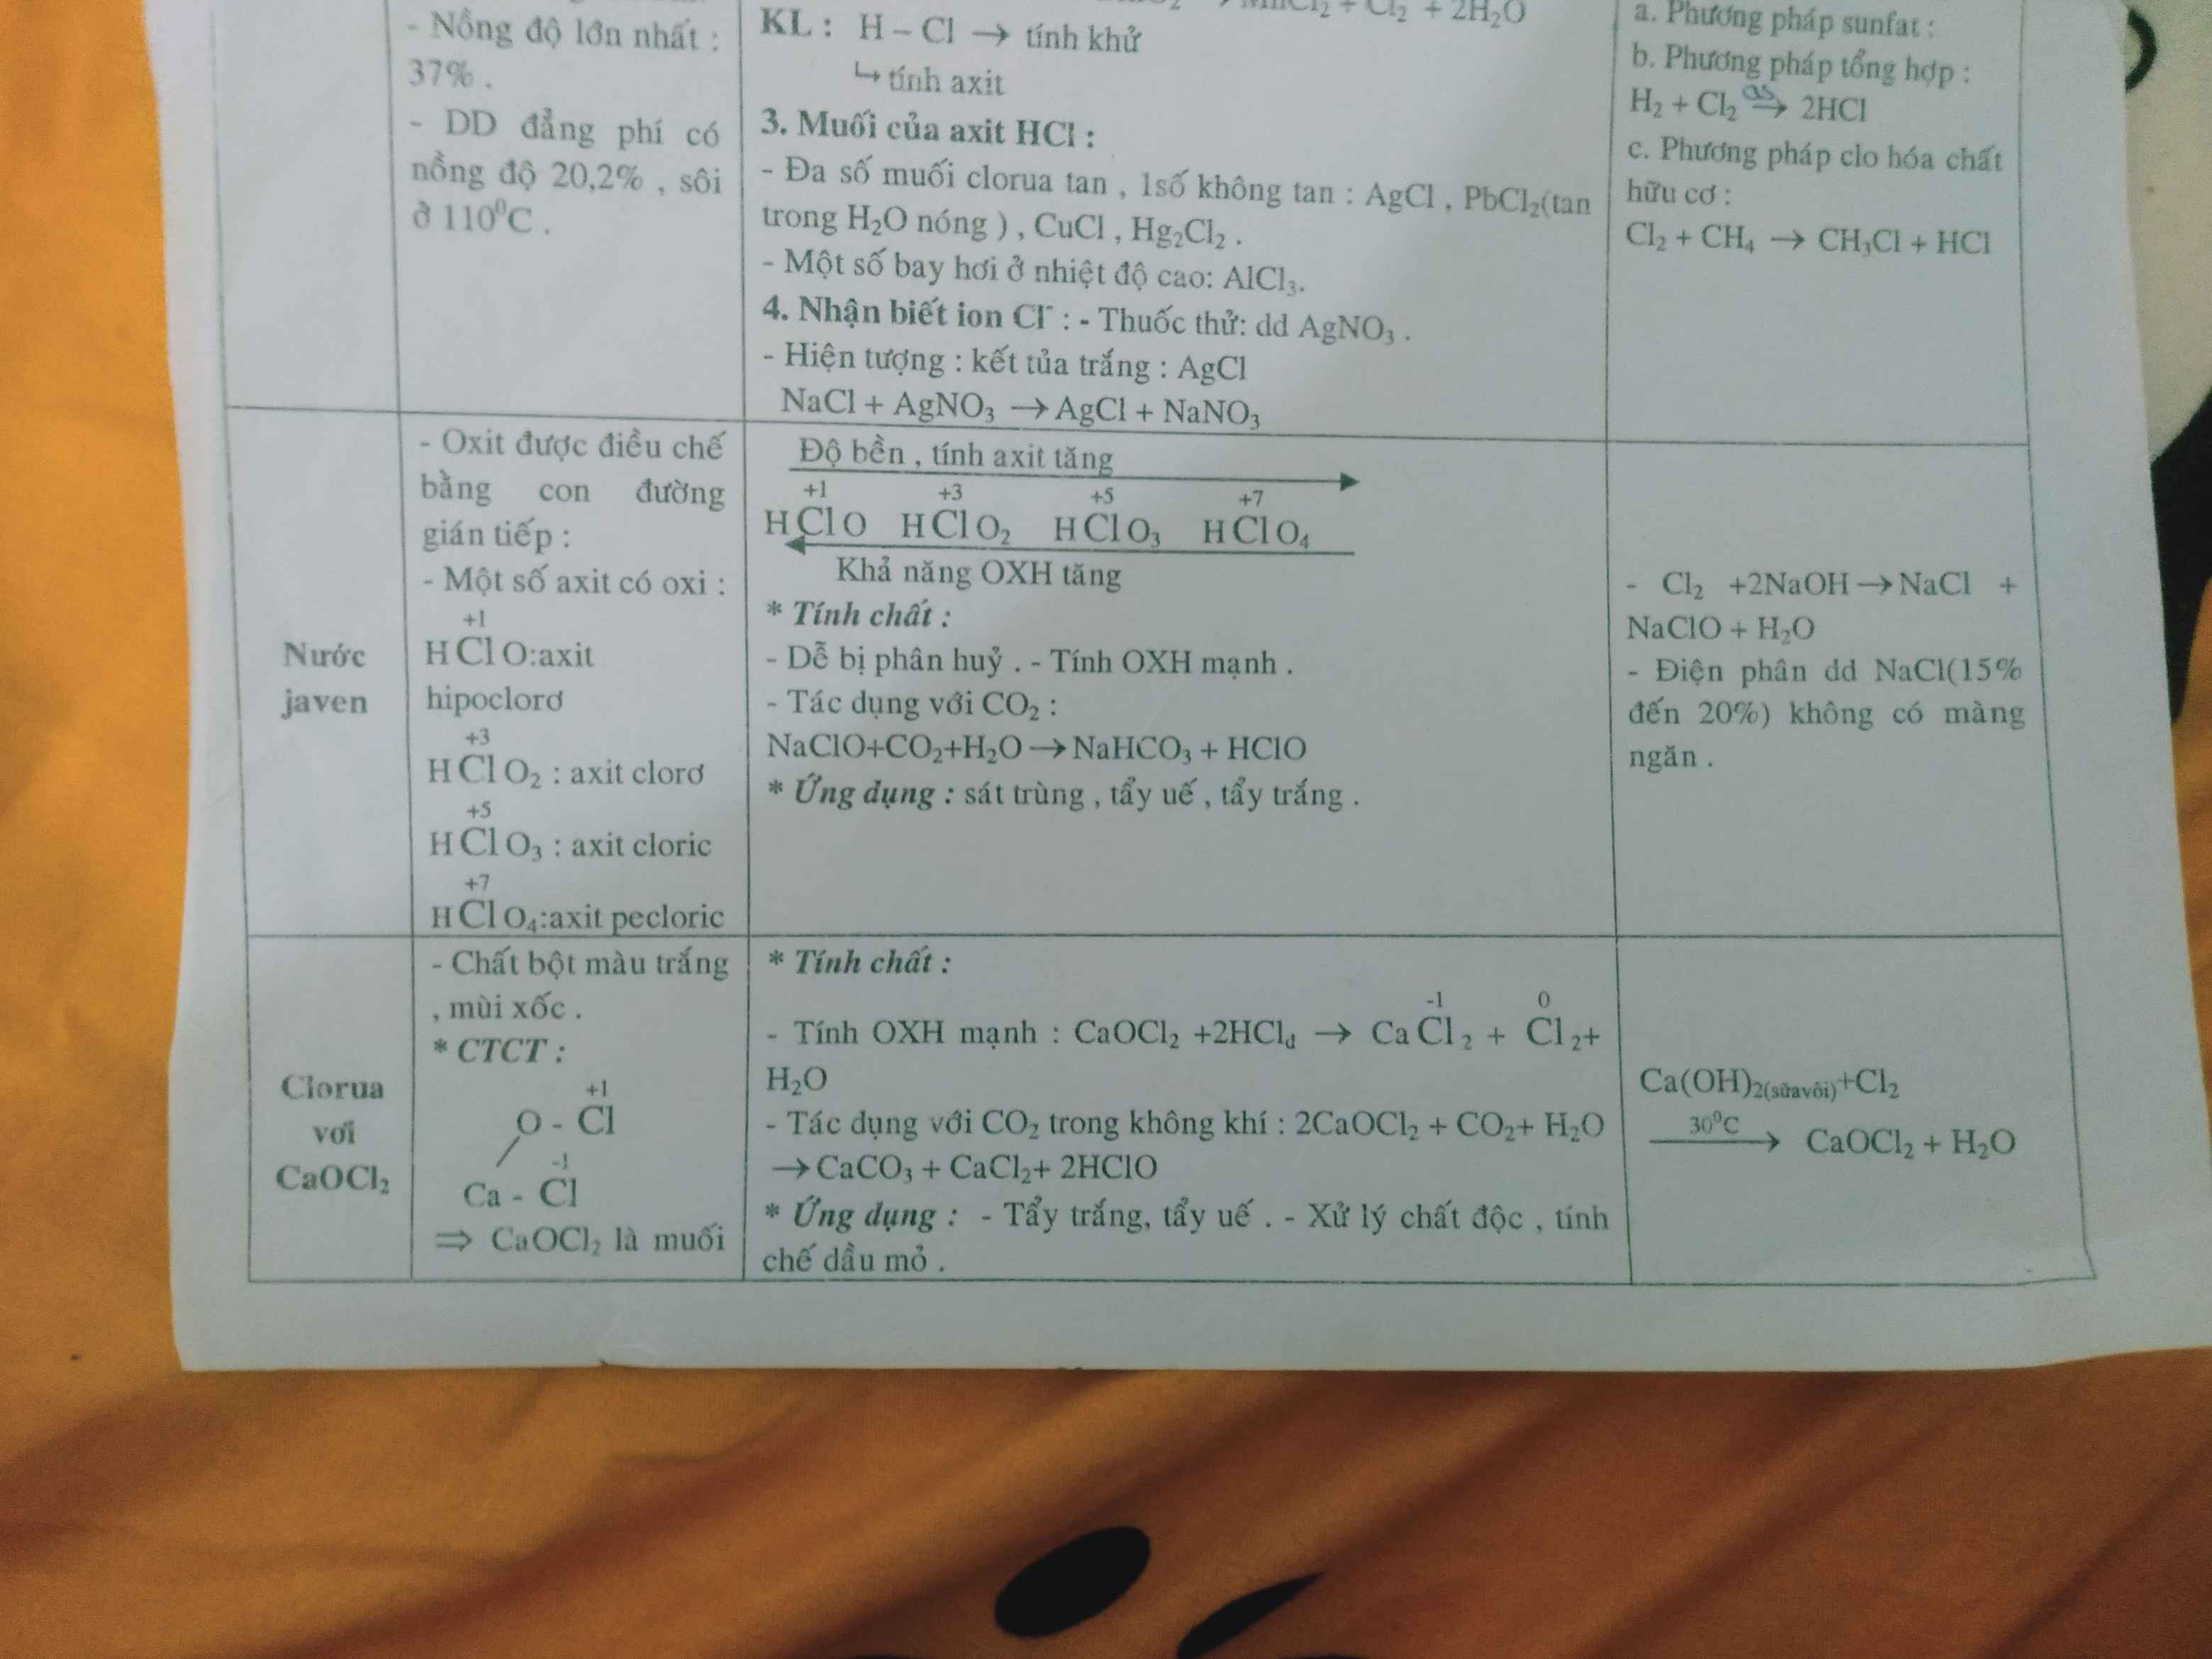 - Nồng độ lớn nhất :
37% .
- DD đẳng phí có
nồng độ 20,2% , sôi
ở 110⁰C .
MnCl₂ + Cl₂ + 2H₂O
KL : H – Cl → tính khử
↳ tính axit
3. Muối của axit HCl :
- Đa số muối clorua tan , 1số không tan : AgCl , PbCl₂(tan
trong H₂O nóng ) , CuCl , Hg₂Cl₂ .
- Một số bay hơi ở nhiệt độ cao: AlCl₃.
4. Nhận biết ion Cl⁻ : - Thuốc thử: dd AgNO₃ .
- Hiện tượng : kết tủa trắng : AgCl
NaCl + AgNO₃ → AgCl + NaNO₃
a. Phương pháp sunfat :
b. Phương pháp tổng hợp :
H₂ + Cl₂ as → 2HCl
c. Phương pháp clo hóa chất
hữu cơ :
Cl₂ + CH₄ → CH₃Cl + HCl
Nước
javen
- Oxit được điều chế
bằng con đường
gián tiếp :
- Một số axit có oxi :
+1
H Cl O:axit
hipoclorơ
+3
H Cl O₂ : axit clorơ
+5
H Cl O₃ : axit cloric
+7
H Cl O₄:axit pecloric
Độ bền , tính axit tăng
+1 +3 +5 +7
H Cl O H Cl O₂ H Cl O₃ H Cl O₄
Khả năng OXH tăng
* Tính chất :
- Dễ bị phân huỷ . - Tính OXH mạnh .
- Tác dụng với CO₂ :
NaClO+CO₂+H₂O → NaHCO₃ + HClO
* Ứng dụng : sát trùng , tẩy uế , tẩy trắng .
- Cl₂ +2NaOH → NaCl +
NaClO + H₂O
- Điện phân dd NaCl(15%
đến 20%) không có màng
ngăn .
Clorua
vơi
CaOCl₂
- Chất bột màu trắng
, mùi xốc .
* CTCT :
+1
O - Cl
-1
Ca - Cl
⇒ CaOCl₂ là muối
* Tính chất :
-1 0
- Tính OXH mạnh : CaOCl₂ +2HClđ → Ca Cl ₂ + Cl ₂+
H₂O
- Tác dụng với CO₂ trong không khí : 2CaOCl₂ + CO₂+ H₂O
→ CaCO₃ + CaCl₂+ 2HClO
* Ứng dụng : - Tẩy trắng, tẩy uế . - Xử lý chất độc , tính
chế dầu mỏ .
Ca(OH)₂(sữavôi)+Cl₂
30⁰C → CaOCl₂ + H₂O